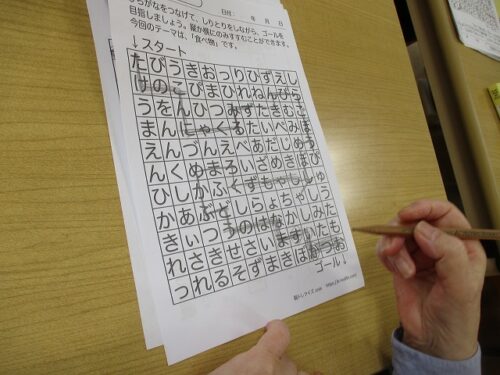 日付: 年 月 日
らがなをつなげて、しりとりをしながら、ゴールを
目指しましょう。縦か横にのみすすむことができます。
今回のテーマは、「食べ物」です。
↓スタート
たびうきおっりひずえし
けのこぴまひれねんびら
うをんひつみずたきむこ
まんにゃくるたいべみ
えんづんえべあだじめ
んくめまろいざめきぼ
ひしかふくずもやししゅ
かあぶどしらょちゃしう
きぃつうのはなかしみた
れさきせさいますいたも
っれるそずまきはおつお
ゴール↓